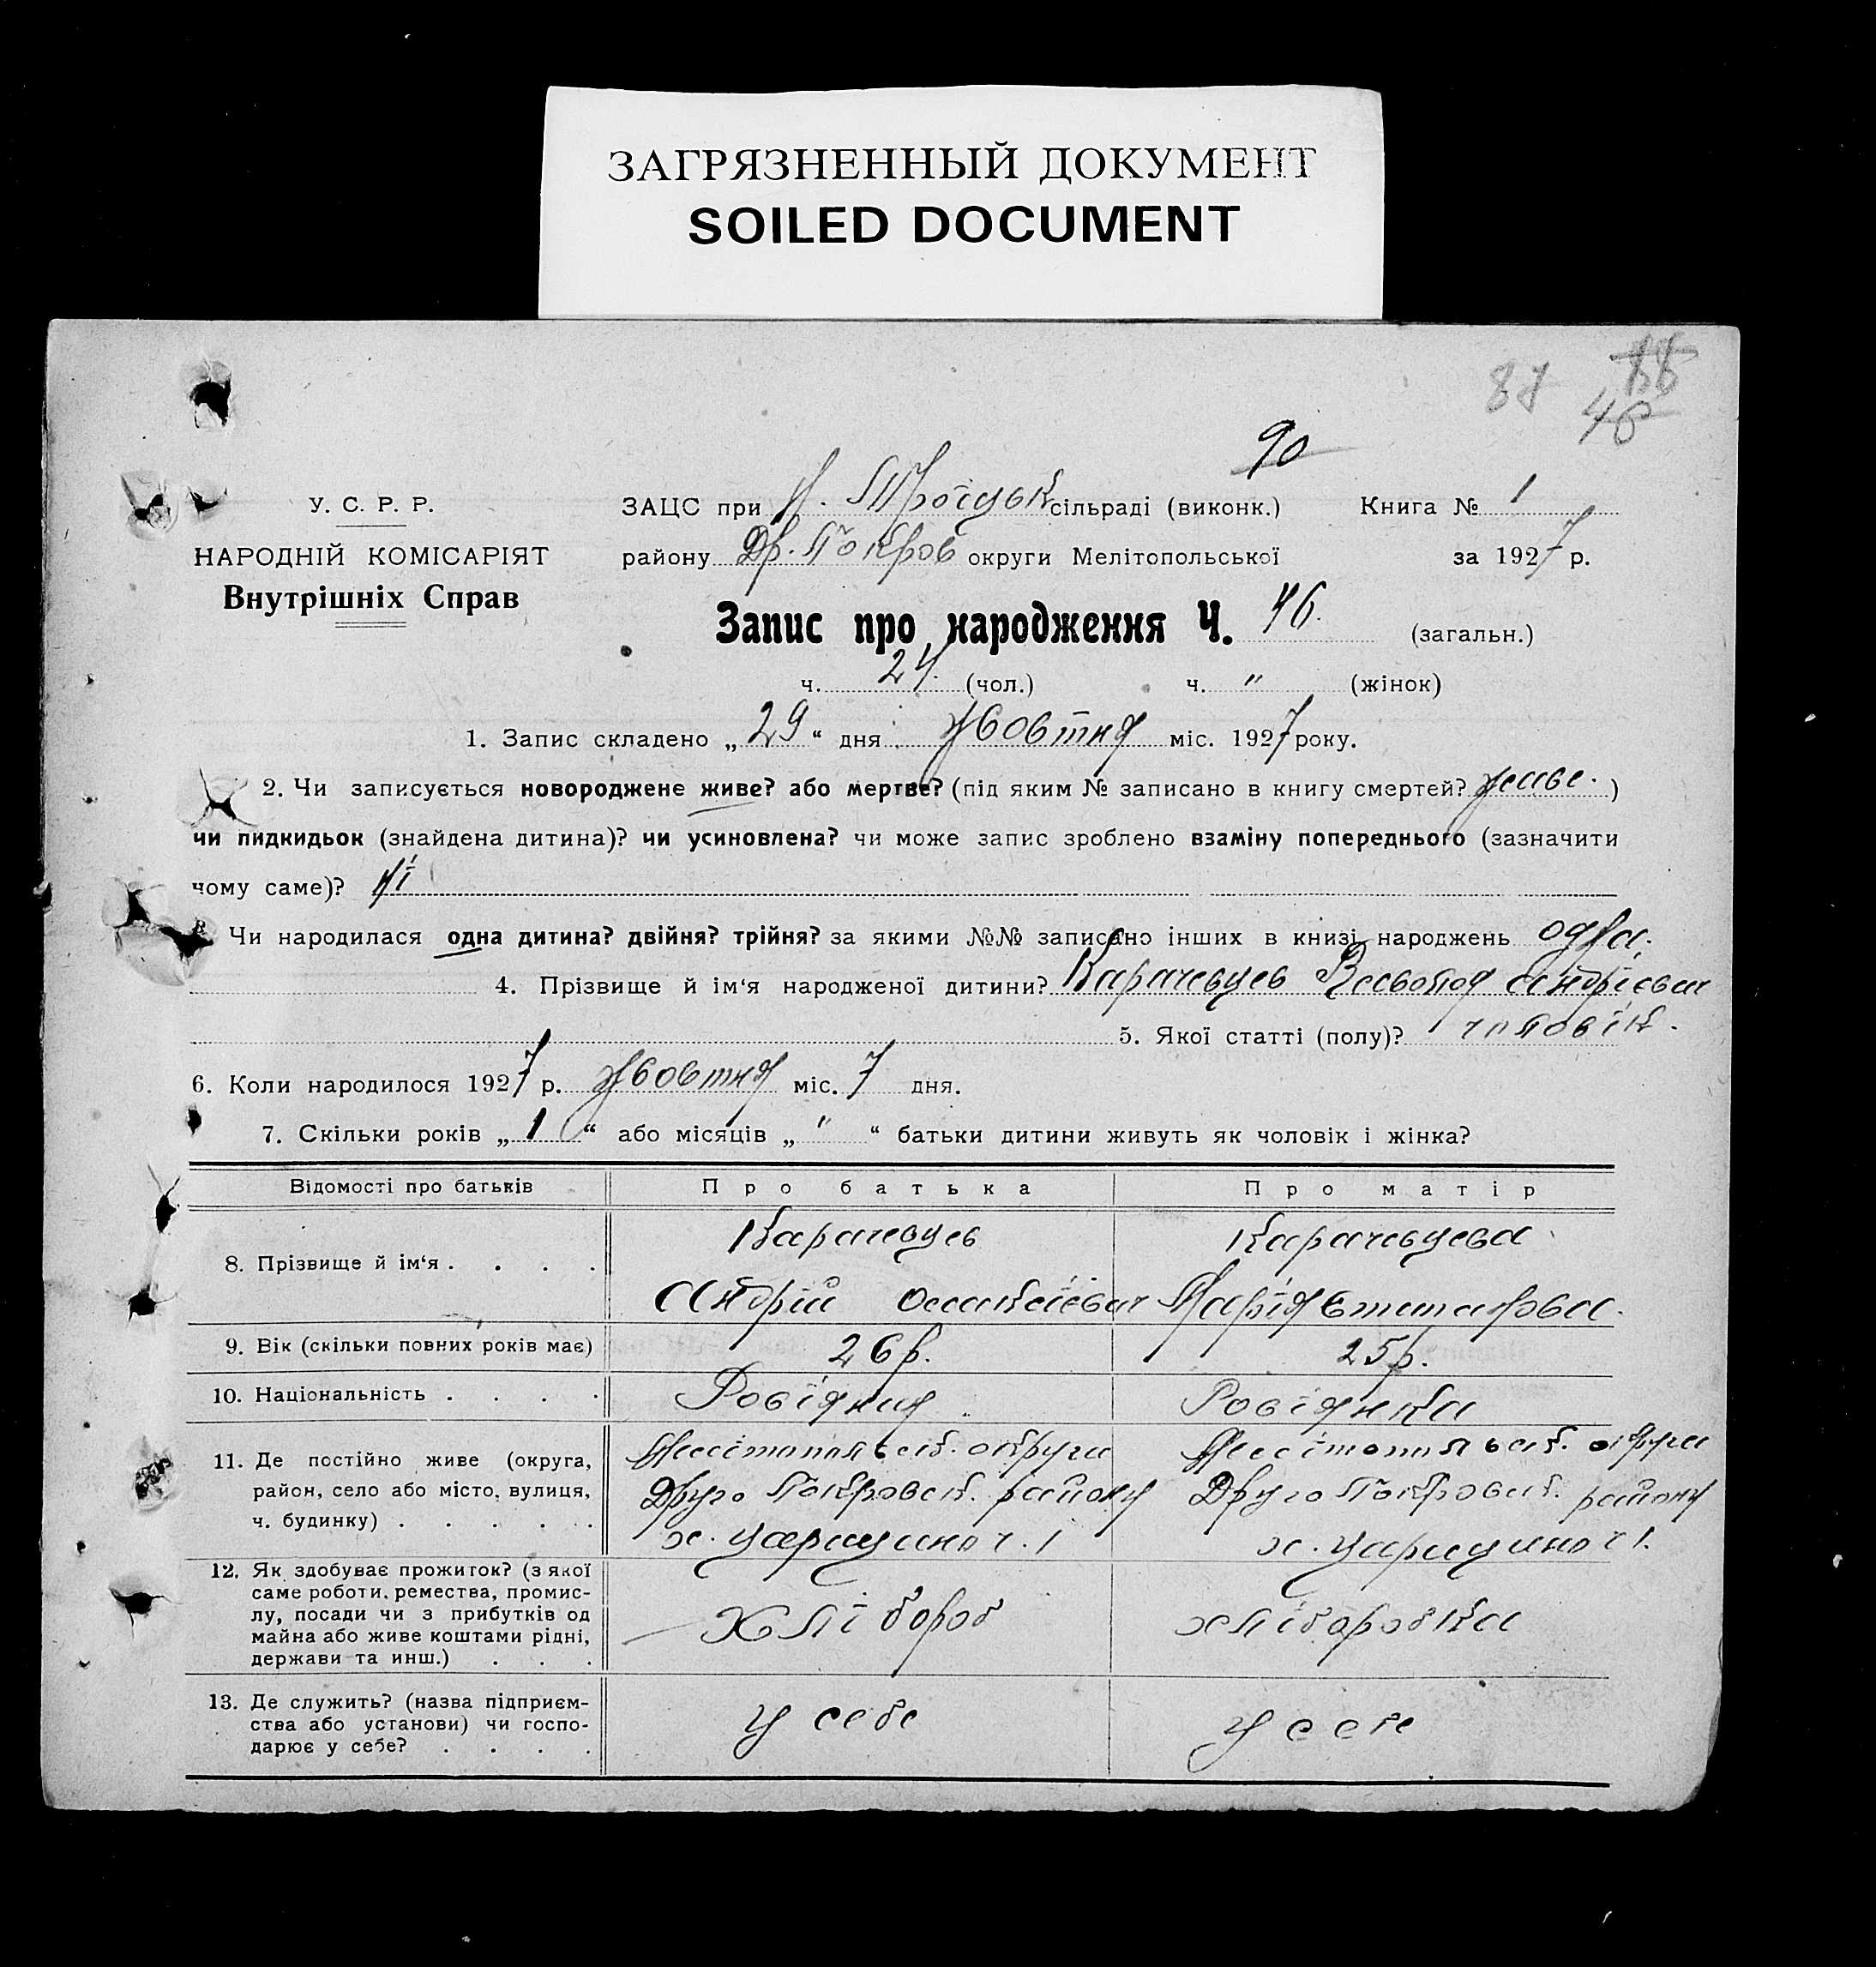 ЗАГРЯЗНЕННЫЙ ДОКУМЕНТ
SOILED DOCUMENT
87 88
46
90
У. С. Р. Р.
НАРОДНІЙ КОМІСАРІЯТ
Внутрішніх Справ
ЗАЦС при Н. Троїцьк сільраді (виконк.) Книга № 1
району Др. Покров округи Мелітопольської за 1927 р.
Запис про народження Ч. 46. (загальн.)
ч. 24. (чол.) ч. " (жінок)
1. Запис складено „29“ дня жовтня міс. 1927 року.
2. Чи записується новороджене живе? або мертве? (під яким № записано в книгу смертей? живе.)
чи пидкидьок (знайдена дитина)? чи усиновлена? чи може запис зроблено взаміну попереднього (зазначити
чому саме)? ні
Чи народилася одна дитина? двійня? трійня? за якими №№ записано інших в книзі народжень одна.
4. Прізвище й ім‘я народженої дитини? Карачевцев Всеволод Андрієвич
5. Якої статті (полу)? чоловік.
6. Коли народилося 1927 р. жовтня міс. 7 дня.
7. Скільки років „1“ або місяців „"“ батьки дитини живуть як чоловік і жінка?
Відомості про батьків Про батька Про матір
8. Прізвище й ім‘я . . . . Карачевцев Карачевцева
Андрій Марія
9. Вік (скільки повних років має) 26 р. 25 р.
10. Національність . . . . Росіянин Росіянка
11. Де постійно живе (округа, район, село або місто, вулиця, ч. будинку) . . . . .
Мелітопильськ. округи Мелітопильськ. округи
Друго Покровськ. району Друго Покровськ. району
х. Царицино ч. 1 х. Царицино ч 1.
12. Як здобуває прожиток? (з якої
саме роботи, ремества, промис-
лу, посади чи з прибутків од
майна або живе коштами рідні,
держави та инш.) . . .
Хлібороб хліборобка
13. Де служить? (назва підприєм-
ства або установи) чи госпо-
дарює у себе? . . . .
у себе у себе